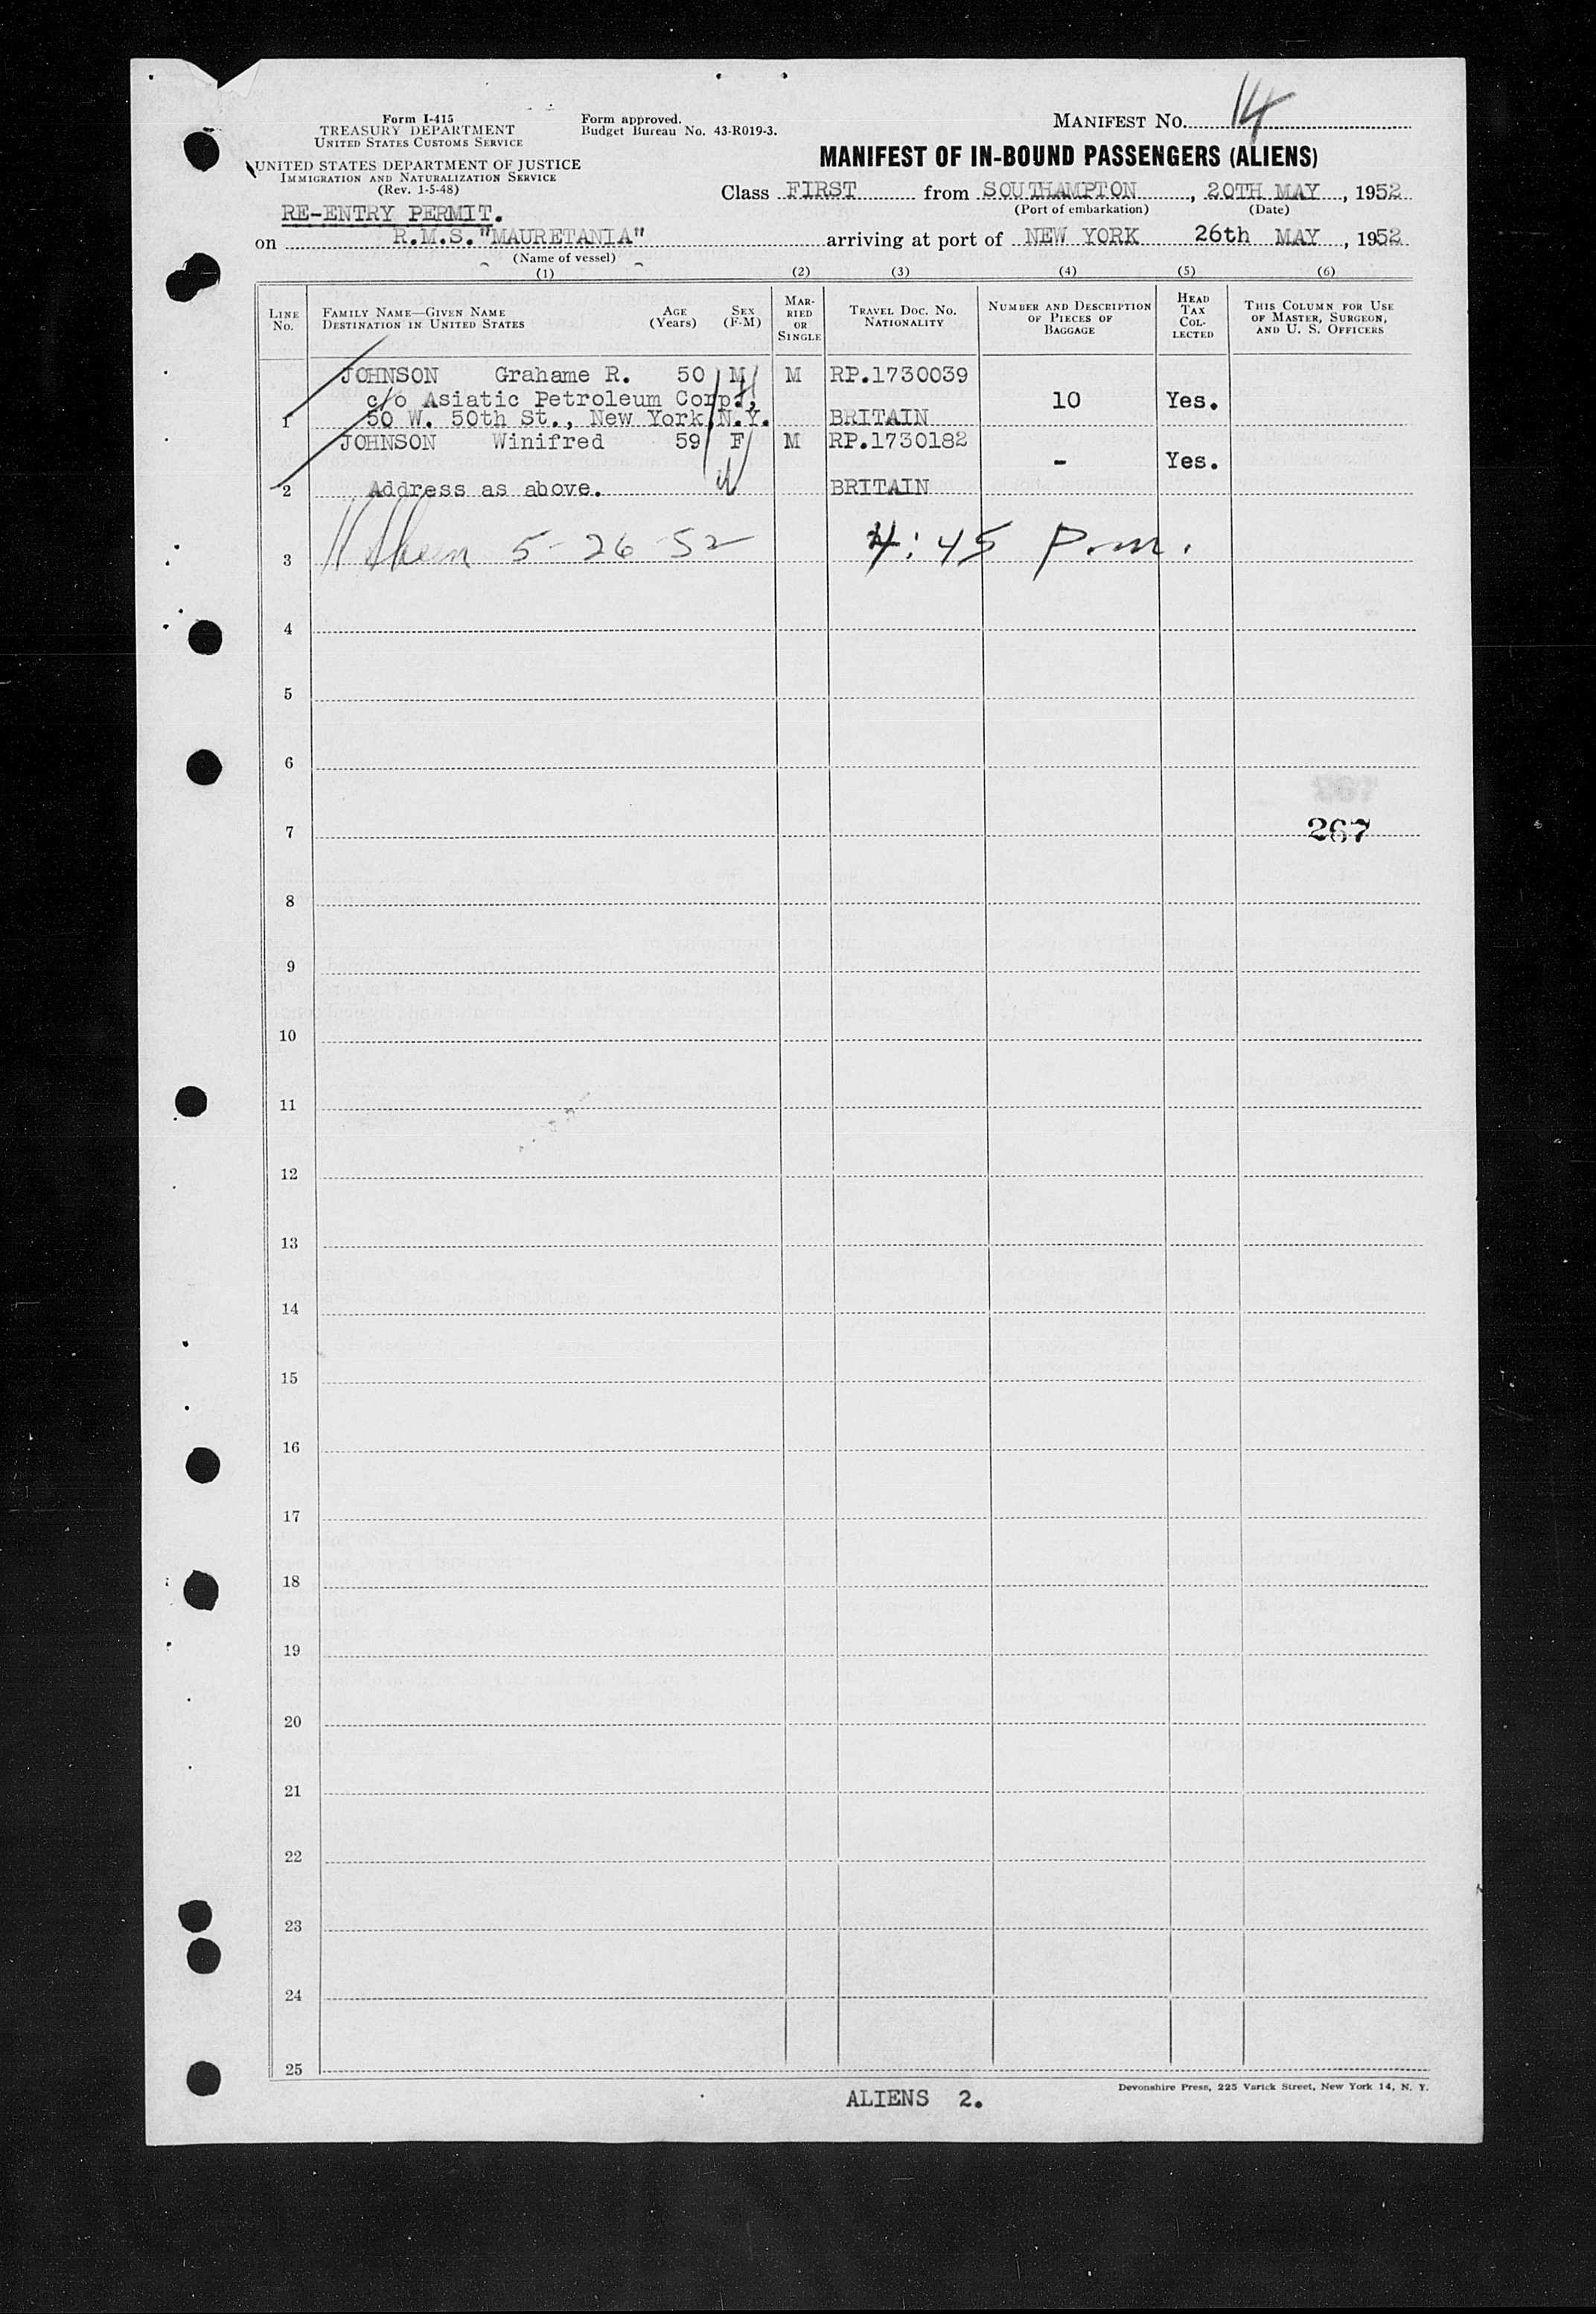 Form I-415
TREASURY DEPARTMENT
UNITED STATES CUSTOMS SERVICE
UNITED STATES DEPARTMENT OF JUSTICE
IMMIGRATION AND NATURALIZATION SERVICE
(Rev. 1-5-48)
Form approved.
Budget Bureau No. 43-R019-3.
MANIFEST NO. 14
MANIFEST OF IN-BOUND PASSENGERS (ALIENS)
Class FIRST from SOUTHAMPTON, 20TH MAY, 1952
(Port of embarkation) (Date)
RE-ENTRY PERMIT.
on R.M.S."MAURETANIA" arriving at port of NEW YORK 26th MAY, 1952
(Name of vessel)
(1) (2) (3) (4) (5) (6)
LINE No.
FAMILY NAME—GIVEN NAME
DESTINATION IN UNITED STATES
AGE (Years)
SEX (F-M)
MARRIED OR SINGLE
TRAVEL DOC. NO.
NATIONALITY
NUMBER AND DESCRIPTION OF PIECES OF BAGGAGE
HEAD TAX COLLECTED
THIS COLUMN FOR USE OF MASTER, SURGEON, AND U. S. OFFICERS
JOHNSON Grahame R. 50 M M RP.1730039
c/o Asiatic Petroleum Corp., 10 Yes.
1 50 W. 50th St., New York,N.Y. BRITAIN
JOHNSON Winifred 59 F M RP.1730182
- Yes.
2 Address as above. BRITAIN
3 5-26-52 4:45 P.m.
4
5
6
7 267
8
9
10
11
12
13
14
15
16
17
18
19
20
21
22
23
24
25
Devonshire Press, 225 Varick Street, New York 14, N. Y.
ALIENS 2.